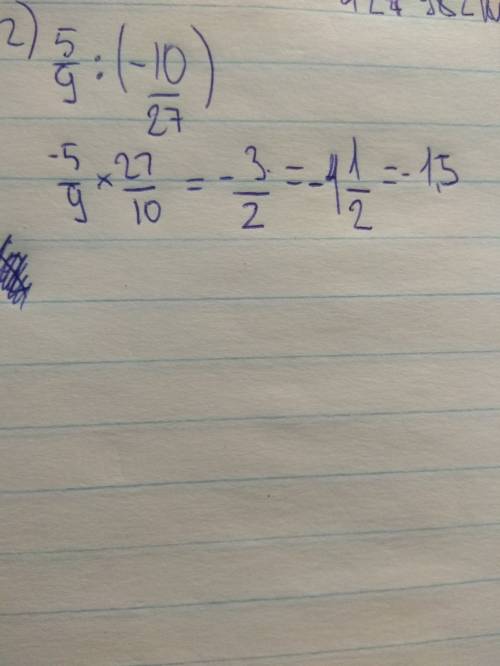 2) 5/9 : (-10/27)
-5/9 × 27/10 = -3/2 = -1 1/2 = -1,5